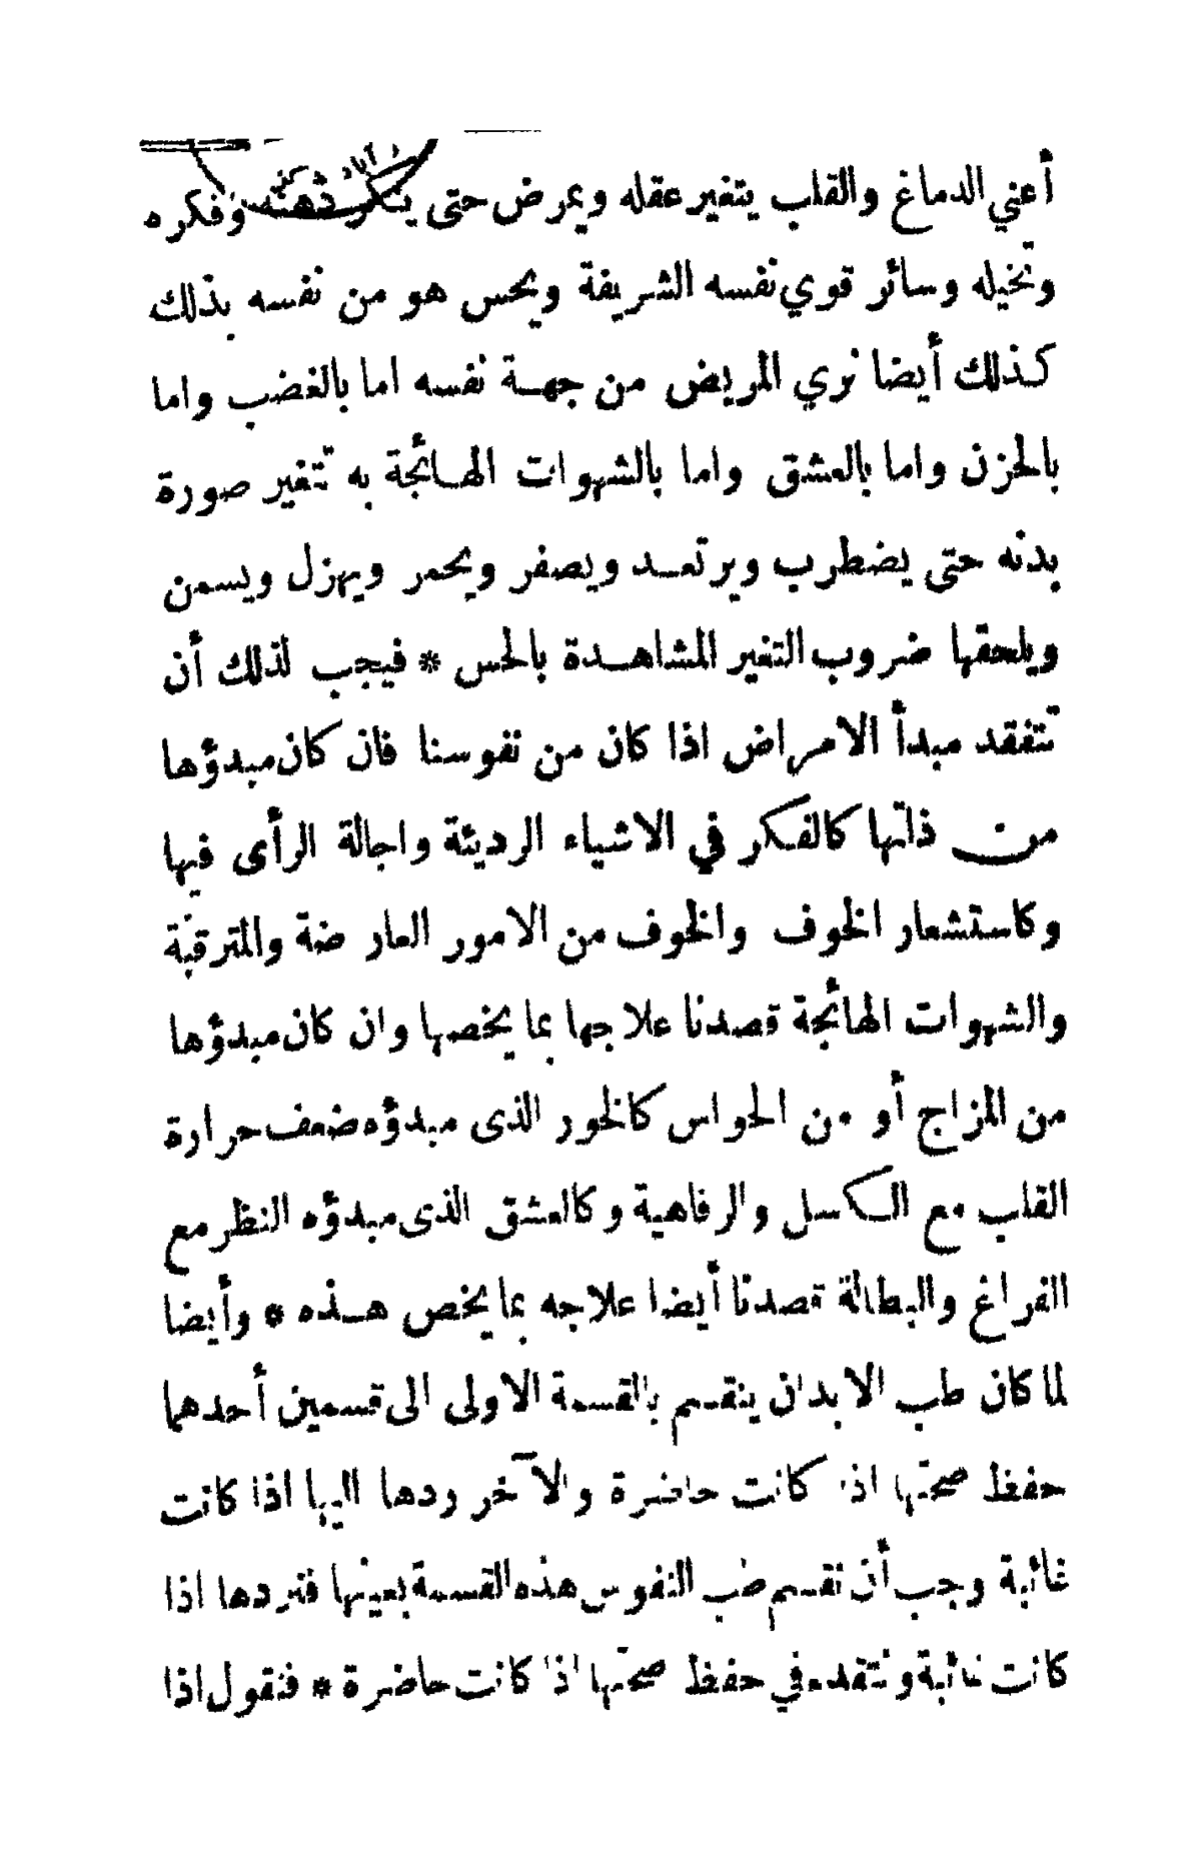 أعني الدماغ والقلب يتغير عقله ويمرض حتى ينكر ذهنه وفكره
وتخيله وسائر قوي نفسه الشريفة ويحس هو من نفسه بذلك
كذلك أيضا نري المريض من جهة نفسه اما بالغضب واما
بالحزن واما بالعشق واما بالشهوات الهائجة به تتغير صورة
بدنه حتى يضطرب ويرتعد ويصفر ويحمر ويهزل ويسمن
ويلحقها ضروب التغير المشاهدة بالحس * فيجب لذلك أن
نتفقد مبدأ الامراض اذا كان من نفوسنا فان كان مبدؤها
من ذاتها كالفكر في الاشياء الرديئة واجالة الرأى فيها
وكاستشعار الخوف والخوف من الامور العارضة والمترقبة
والشهوات الهائجة قصدنا علاجها بما يخصها وان كان مبدؤها
من المزاج أو من الحواس كالخور الذى مبدؤه ضعف حرارة
القلب مع الكسل والرفاهية وكالعشق الذى مبدؤه النظر مع
الفراغ والبطالة قصدنا أيضا علاجه بما يخص هذه * وأيضا
لما كان طب الابدان ينقسم بالقسمة الاولى الى قسمين أحدهما
حفظ صحتها اذا كانت حاضرة والآخر ردها اليها اذا كانت
غائبة وجب أن نقسم طب النفوس هذه القسمة بعينها فنردها اذا
كانت غائبة ونتقدم في حفظ صحتها اذا كانت حاضرة * فنقول اذا